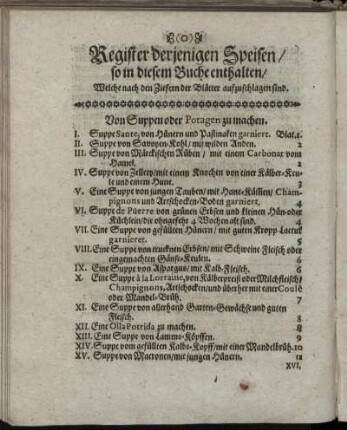 (o)
Register derjenigen Speisen/
so in diesem Buche enthalten/
Welche nach den Ziefern der Blätter aufzuschlagen sind.
Von Suppen oder Potagen zu machen.
I. Suppe Sante, von Hünern und Pastinaken garniert. Blat. 1.
II. Suppe von Savoyen-Kohl/ mit wilden Anden. 2
III. Suppe von Märckischen Rüben/ mit einem Carbonat vom
Hamel. 2
IV. Suppe von Zellery/ mit einem Knochen von einer Kälber-Keu-
le und einem Hunt. 3
V. Eine Suppe von jungen Tauben/ mit Hane-Küllen/ Cham-
pignons und Artschocken-Boden garniert. 4
VI. Suppe de Püerre von grünen Erbsen und kleinen Hün-oder
Küchlein/ die ohngefehr 4 Wochen alt sind. 4
VII. Eine Suppe von gefüllten Hünern/ mit guten Kropp-Lactuc
garnieret. 5
VIII. Eine Suppe von trucknen Erbsen/ mit Schweine Fleisch oder
eingemachten Gänse-Keulen. 6
IX. Eine Suppe von Aspargus/ mit Kalb-Fleisch. 6
X. Eine Suppe à la Lorraine, von Kälberpreis oder Milchfleisch/
Champignons, Artischocken/ und überher mit einer Coulé
oder Mandel-Brüh. 7
XI. Eine Suppe von allerhand Garten-Gewächse und guten
Fleisch. 8
XII. Eine Olla Potrida zu machen. 8
XIII. Eine Suppe von Lamms-Köpffen. 9
XIV. Suppe vom gefüllten Kalbs-Kopff/ mit einer Mandelbrüh. 10
XV. Suppe von Macronen/ mit jungen Hünern. 11
XVI.